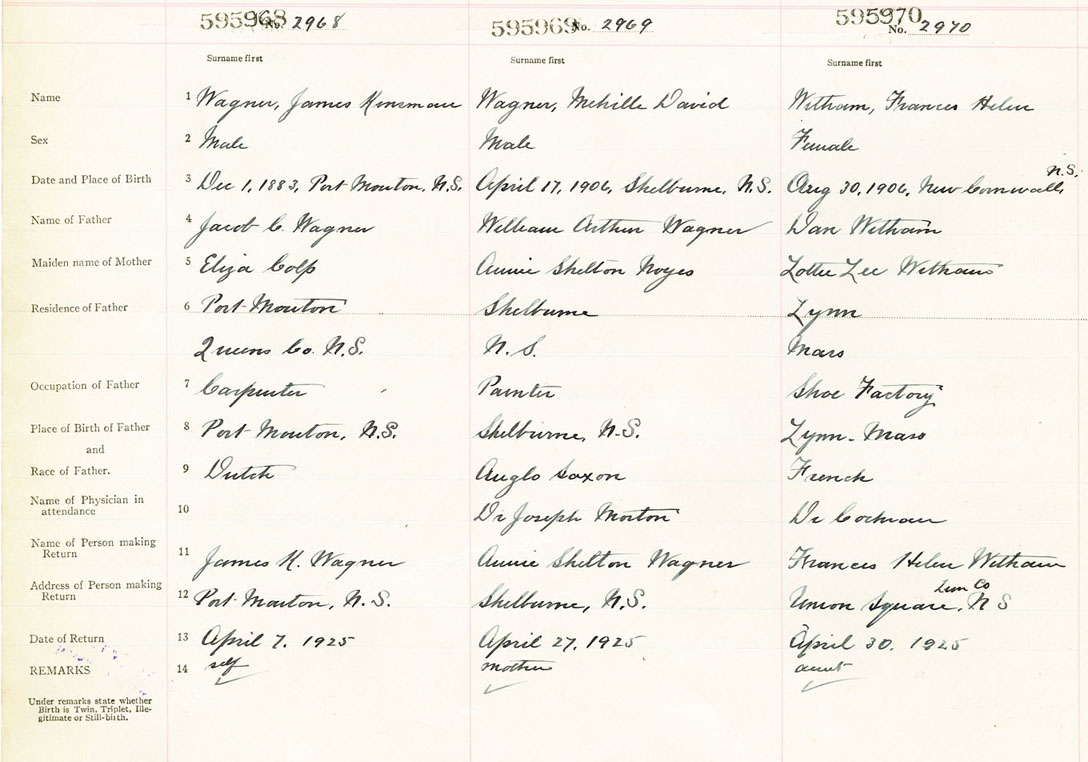 595968 No. 2968 595969 No. 2969 595970 No. 2970
Surname first Surname first Surname first
Name 1 Wagner, James Kinsman Wagner, Melville David Witham, Frances Helen
Sex 2 Male Male Female
N.S.
Date and Place of Birth 3 Dec 1, 1883, Port Mouton, N.S. April 17, 1906, Shelburne, N.S. Aug 30, 1906, New Cornwall,
Name of Father 4 Jacob C. Wagner William Arthur Wagner Dan Witham
Maiden name of Mother 5 Eliza Colp Annie Shelton Noyes Lottie Lee Witham
Residence of Father 6 Port Mouton Shelburne Lynn
Queens Co. N.S. N.S. Mass
Occupation of Father 7 Carpenter Painter Shoe Factory
Place of Birth of Father 8 Port Mouton, N.S. Shelburne, N.S. Lynn - Mass
and
Race of Father. 9 Dutch Anglo Saxon French
Name of Physician in
attendance 10 Dr Joseph Morton Dr Cochran
Name of Person making
Return 11 James K. Wagner Annie Shelton Wagner Frances Helen Witham
Lun Co
Address of Person making
Return 12 Port Mouton, N.S. Shelburne, N.S. Union Square, N S
Date of Return 13 April 7, 1925 April 27, 1925 April 30, 1925
REMARKS 14 self mother aunt
Under remarks state whether
Birth is Twin, Triplet, Ille-
gitimate or Still-birth.